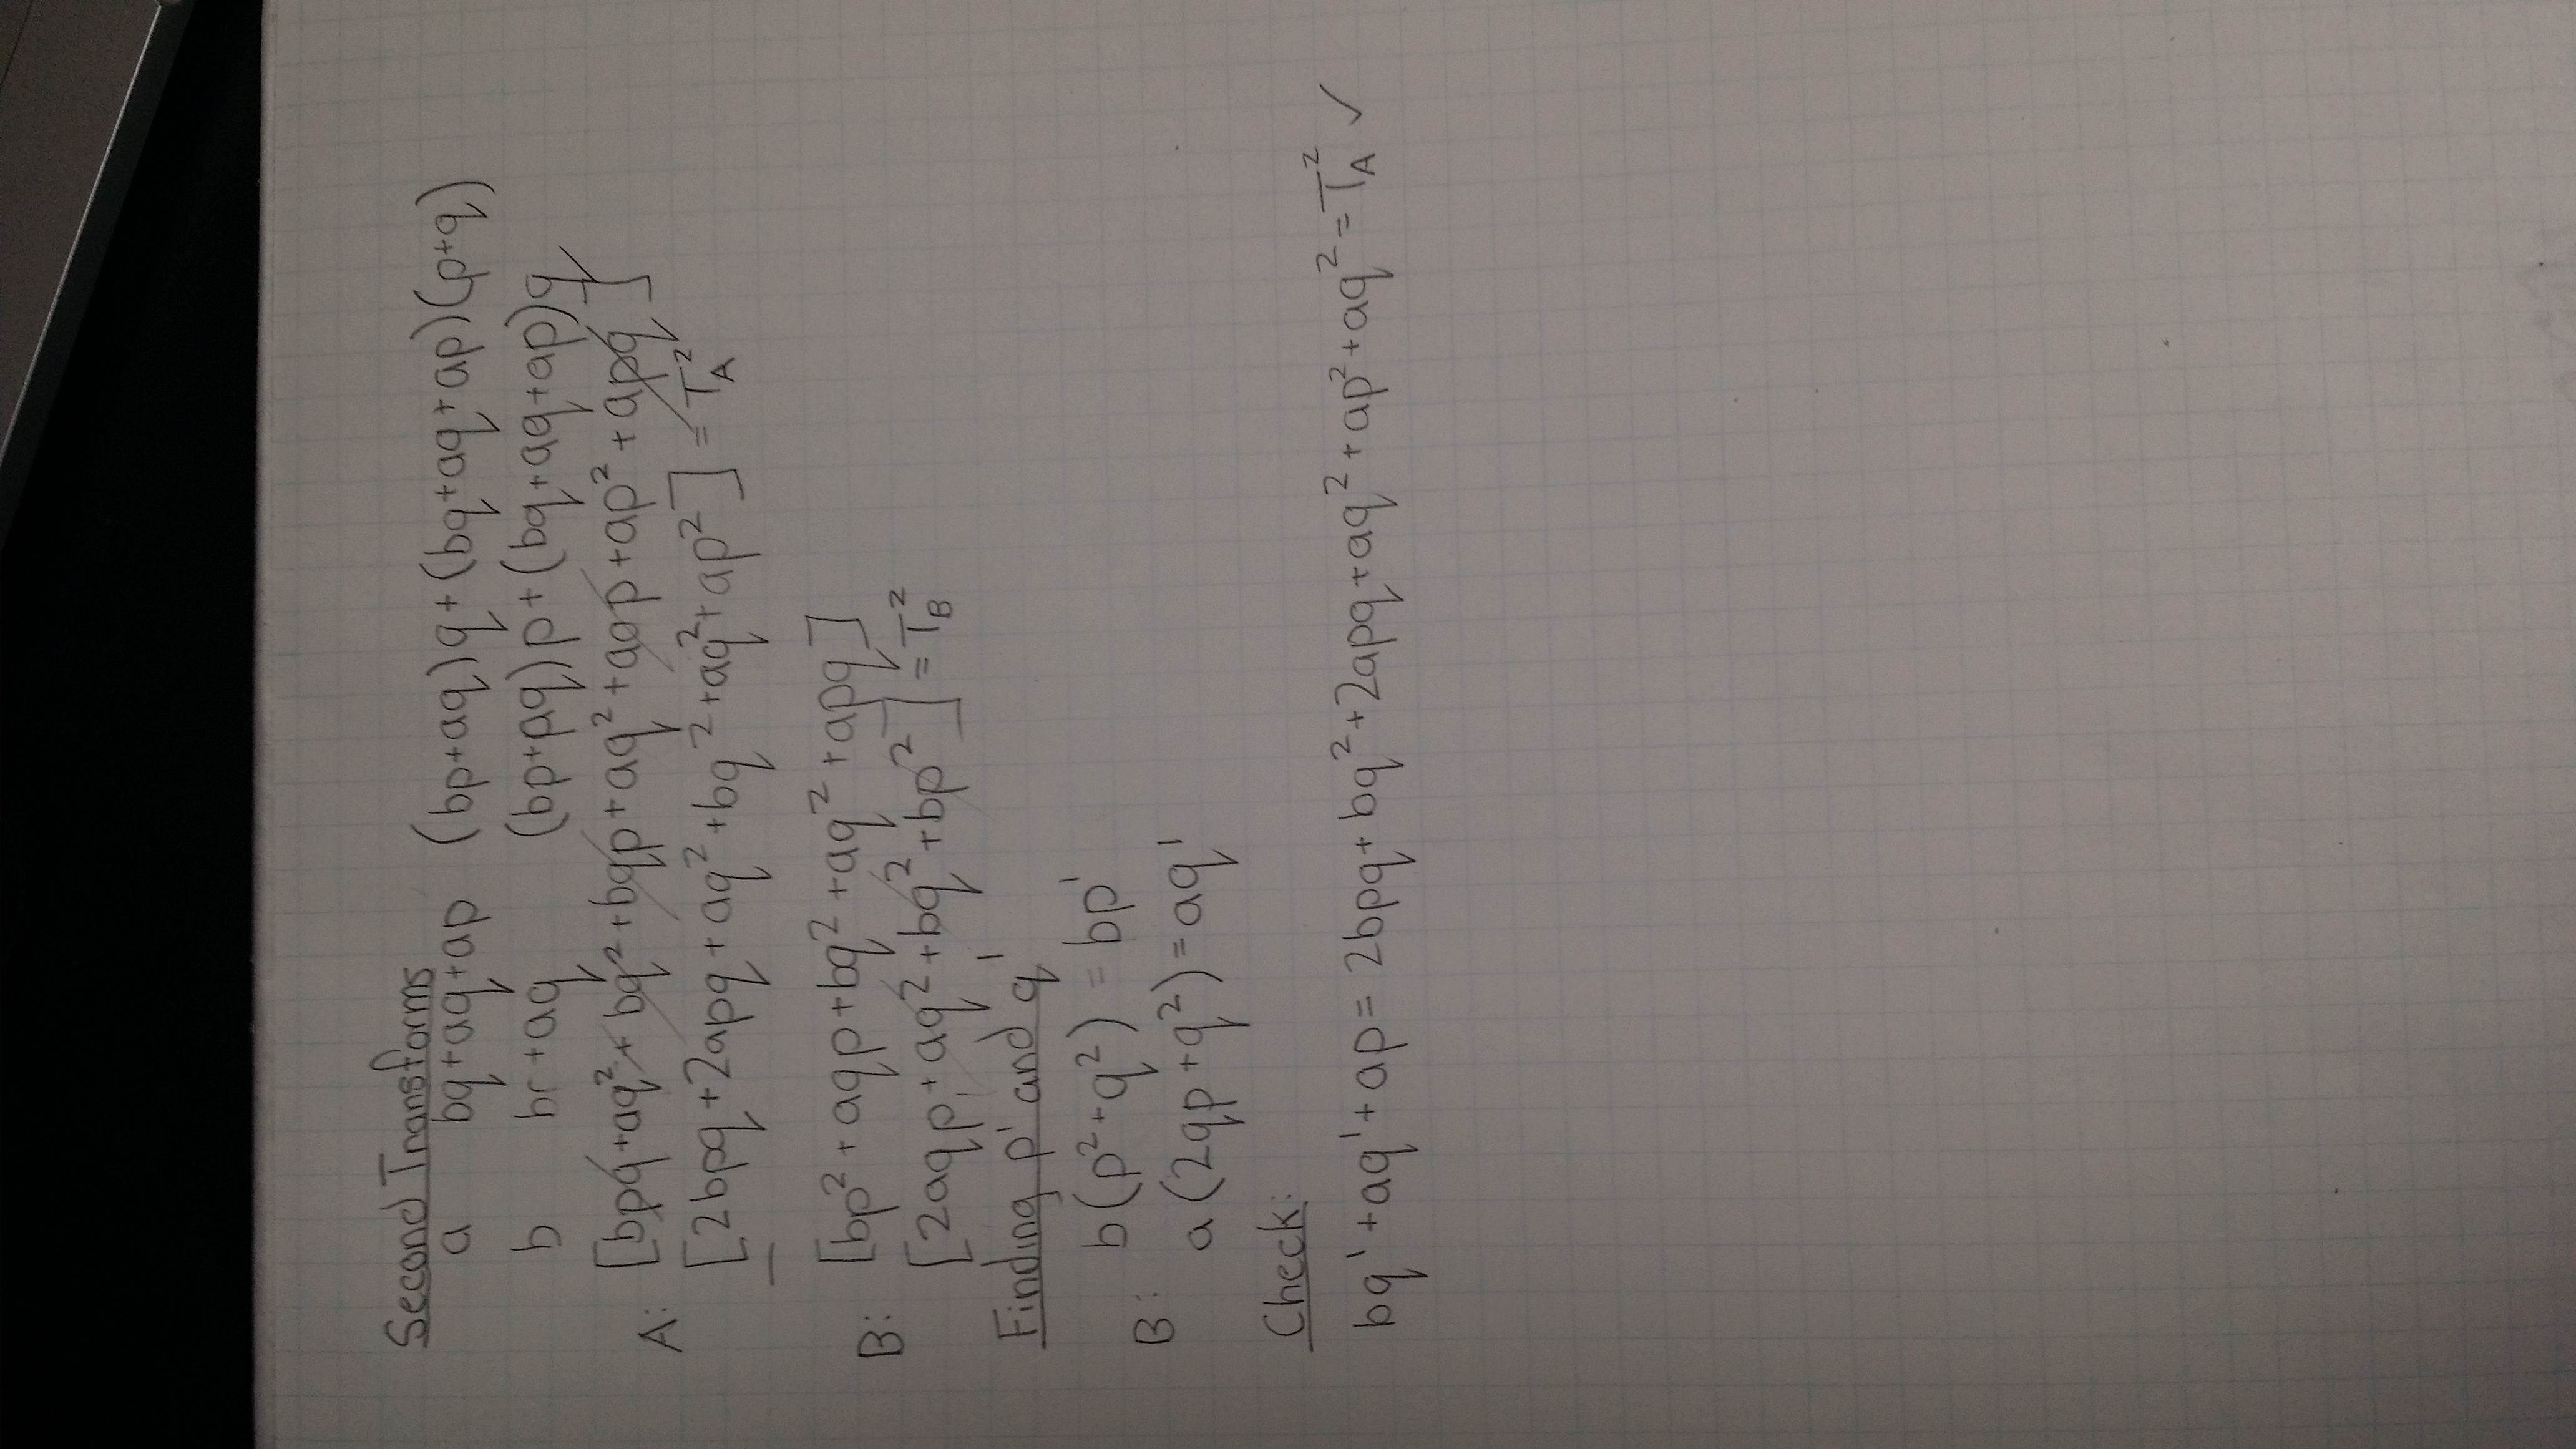 Second Transforms
a bq+aq+ap (bp+aq)q+(bq+aq+ap)(p+q)
b br+aq (bp+aq)p+(bq+aq+ap)q
A: [bpq+aq²+bq²+bqp+aq²+aqp+ap²+apq]
[2bpq+2apq+aq²+bq²+aq²+ap²] = T_A²
B: [bp²+aqp+bq²+aq²+apq]
[2aqp+aq²+bq²+bp²] = T_B²
Finding p' and q'
b(p²+q²) = bp'
B:
a(2qp+q²) = aq'
Check:
bq'+aq'+ap = 2bpq+bq²+2apq+aq²+ap²+aq² = T_A² ✓